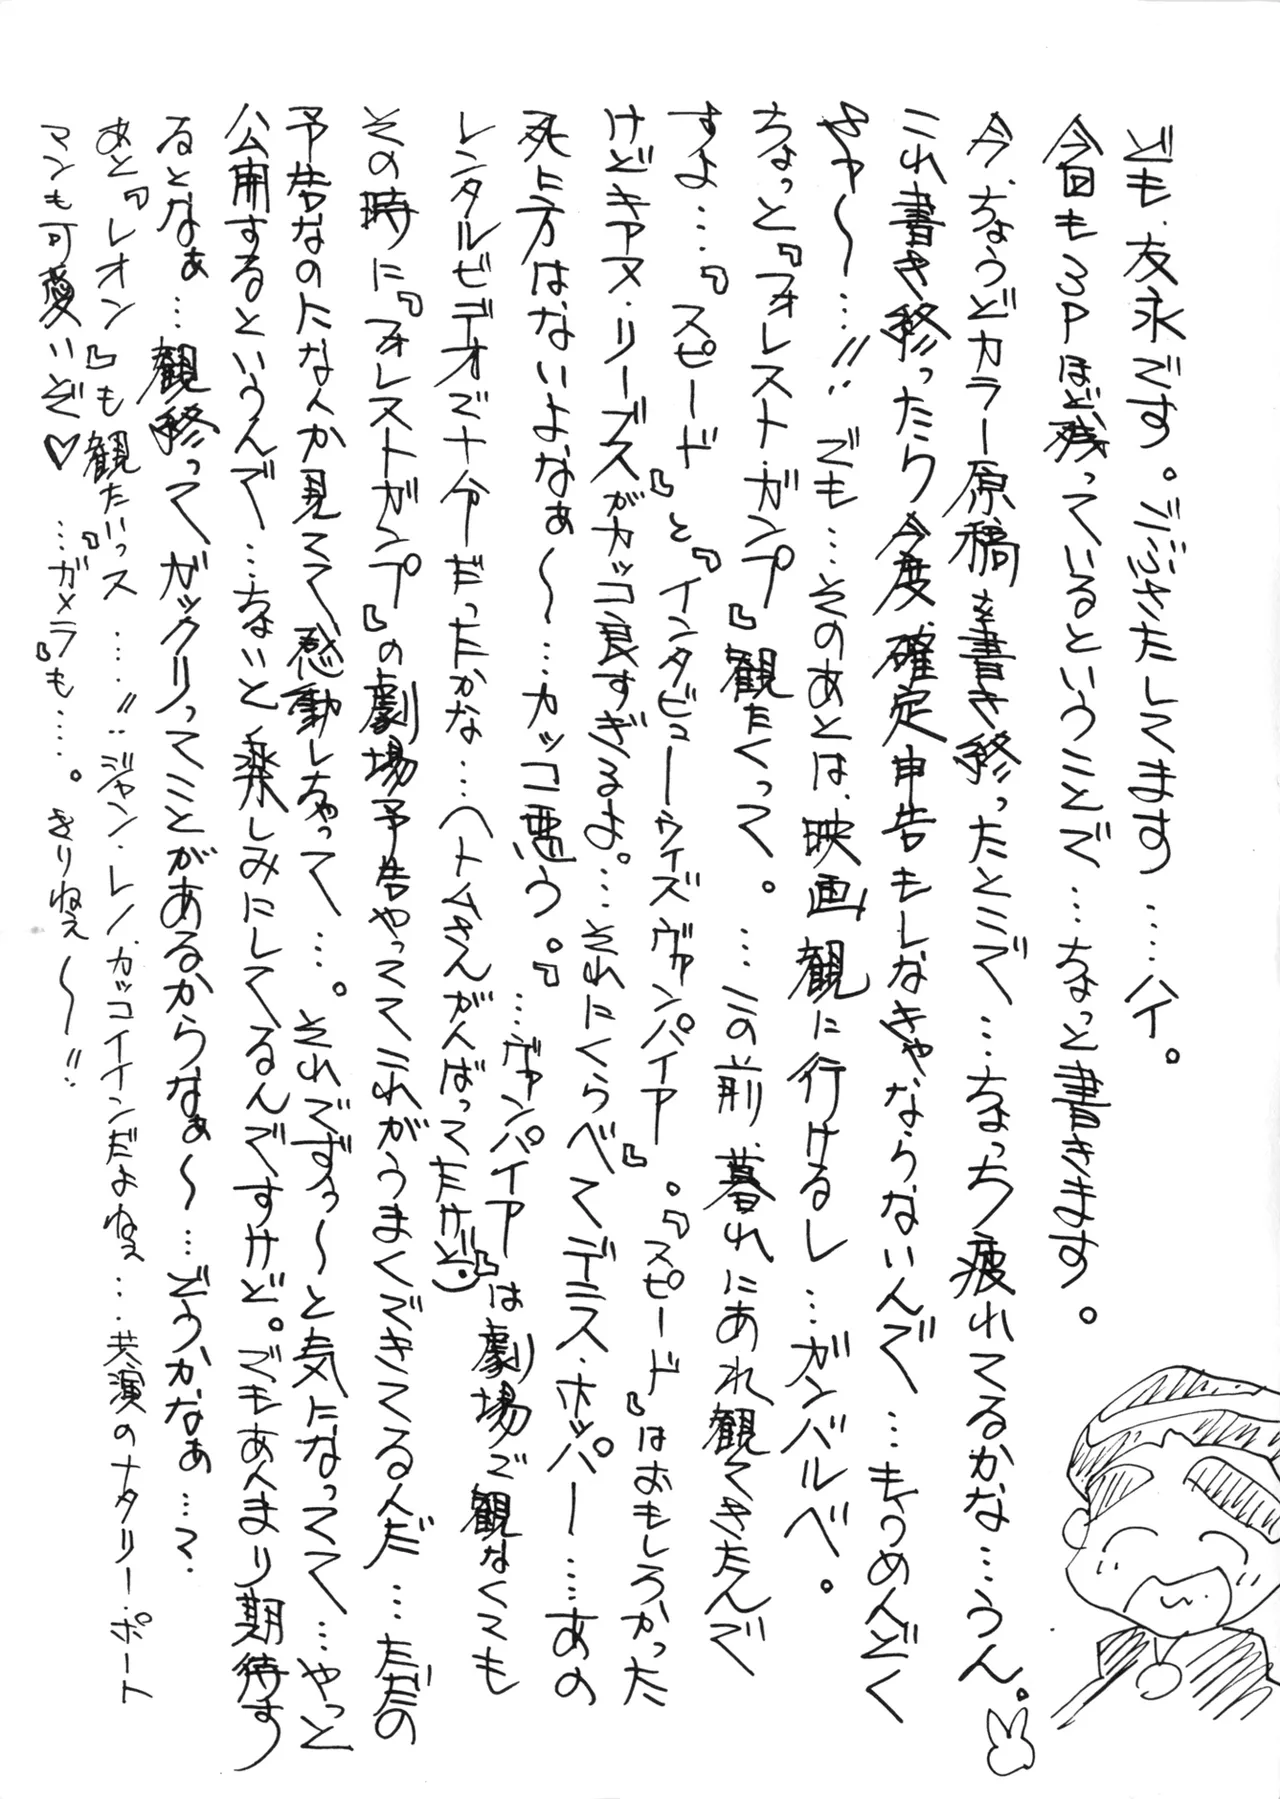 ども、友永です。ごぶさたしてます……ハイ。
今回も3Pほど残っているということで…ちょっと書きます。
今、ちょうどカラー原稿を書き終ったとこで…ちょっち疲れてるかな…うん。
これ書き終ったら今度、確定申告もしなきゃならないんで…もうめんどく
さァ〜…!! でも…そのあとは、映画観に行けるし…ガンバルベ。
ちょっと『フォレスト・ガンプ』観たくって。…この前、暮れにあれ観てきたんで
すよ…『スピード』と『インタビューウィズヴァンパイア』。『スピード』はおもしろかった
けどキアヌ・リーブスがカッコ良すぎるよ。…それにくらべてデニス・ホッパー……あの
死に方はないよなぁ〜…カッコ悪う。『…ヴァンパイア』は劇場で観なくても
レンタルビデオで十分だったかな…(トムさんがんばってたけど)
その時に『フォレストガンプ』の劇場予告やっててこれがうまくできてるんだ…ただの
予告なのになんか見てて感動しちゃって…。それでずぅ〜と気になってて…やっと
公開するというんで…ちょいと楽しみにしてるんですけど。でもあんまり期待す
るとなぁ…観終ってガックリってことがあるからなぁ〜…どうかなぁ…て
あと『レオン』も観たいっス…!! ジャン・レノ、カッコイインだよねェ…共演のナタリー・ポート
マンも可愛いぞ♡ …『ガメラ』も…。きりねェ〜!!